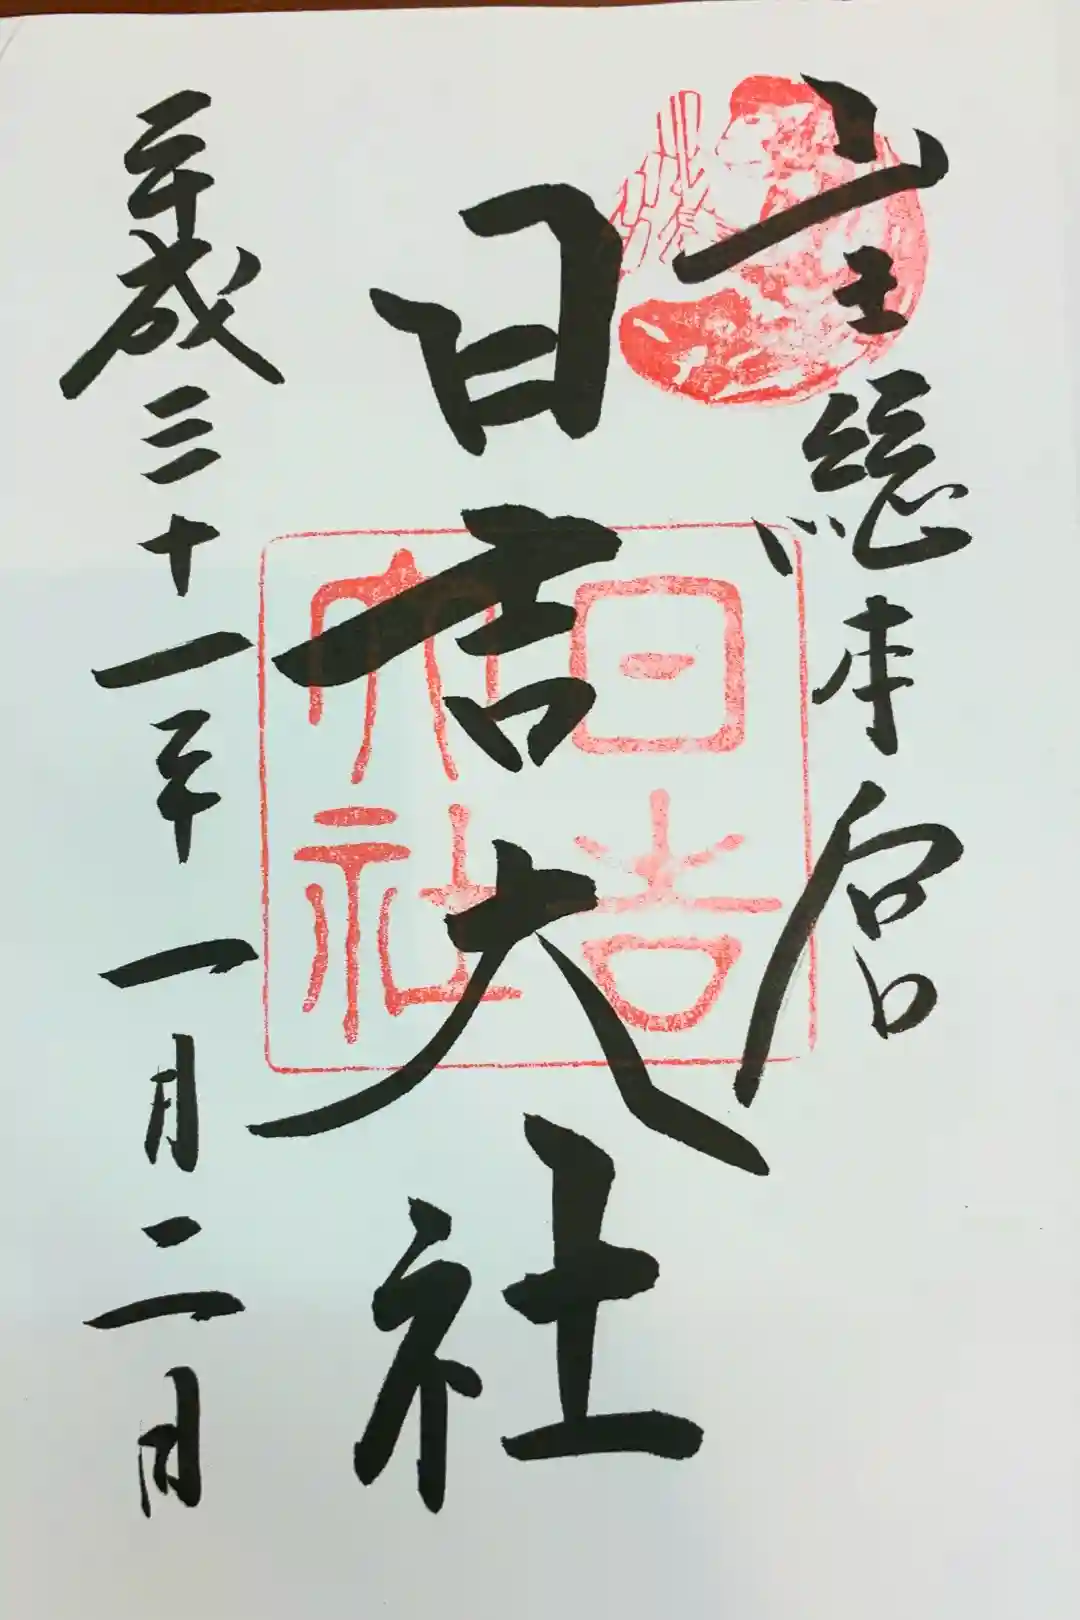 山王總本宮
日吉大社
平成三十一年一月二日
日吉大社